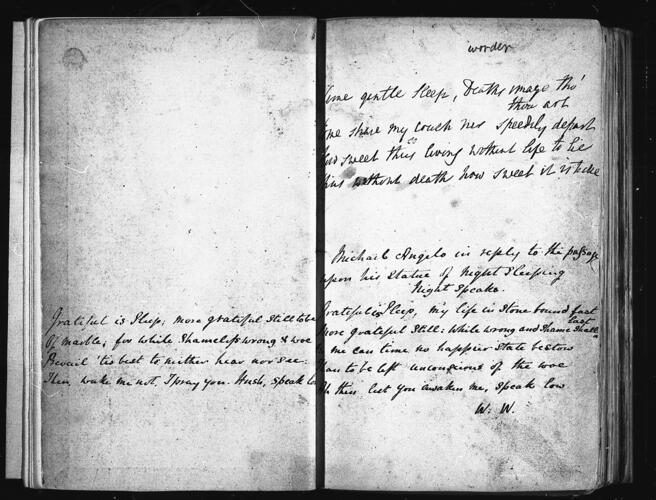 Grateful is Sleep; more grateful still to be
Of marble; for while shameless wrong & woe
Prevail 'tis best to neither hear nor see:
Then wake me not, I pray you. Hush, speak lo
worder
ome gentle Sleep, Deaths image tho'
thou art
ome share my couch nor speedily depart
How sweet thus living without life to lie
hus without death how sweet it is to die
Michael Angelo in reply to the passage
upon his Statue of Night Sleeping
Night Speaks.
Grateful is Sleep, my life in stone bound fast
More grateful still: while wrong and shame shall
last
me can time no happier state bestow
han to be left unconscious of the woe
h then lest you awaken me, speak low
W. W.